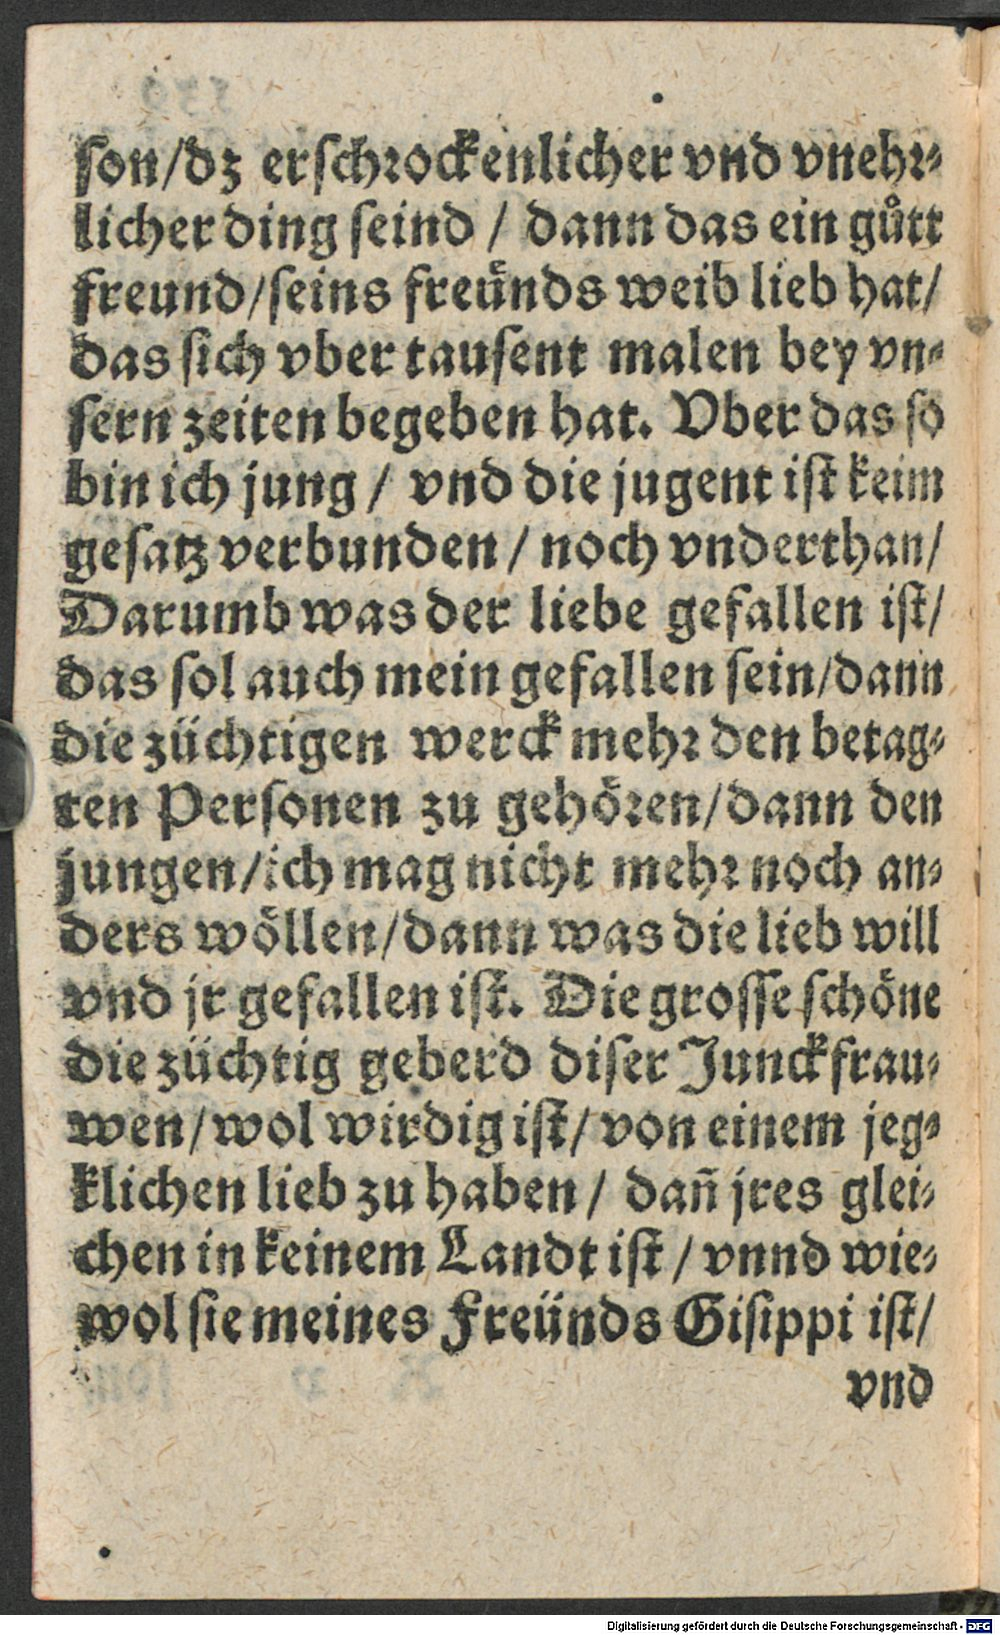 ſon/dz erſchꝛockenlicher vnd vnehꝛ⸗
licher ding ſeind / dann das ein gůtt
freund/ſeins freünds weib lieb hat/
das ſich vber tauſent malen bey vn⸗
ſern zeiten begeben hat. Vber das ſo
bin ich jung / vnd die jugent iſt keim
geſatz verbunden / noch vnderthan/
Darumb was der liebe gefallen iſt/
das ſol auch mein gefallen ſein/dann
die züchtigen werck mehꝛ den betag⸗
ten Perſonen zu gehöꝛen/dann den
jungen/ich mag nicht mehꝛ noch an⸗
ders wöllen/dann was die lieb will
vnd jr gefallen iſt. Die groſſe ſchöne
die züchtig geberd diſer Junckfrau⸗
wen/wol wirdig iſt/von einem jeg⸗
klichen lieb zu haben / dañ jres glei⸗
chen in keinem Landt iſt / vnnd wie⸗
wol ſie meines Freünds Giſippi iſt/
vnd
Digitalisierung gefördert durch die Deutsche Forschungsgemeinschaft - DFG